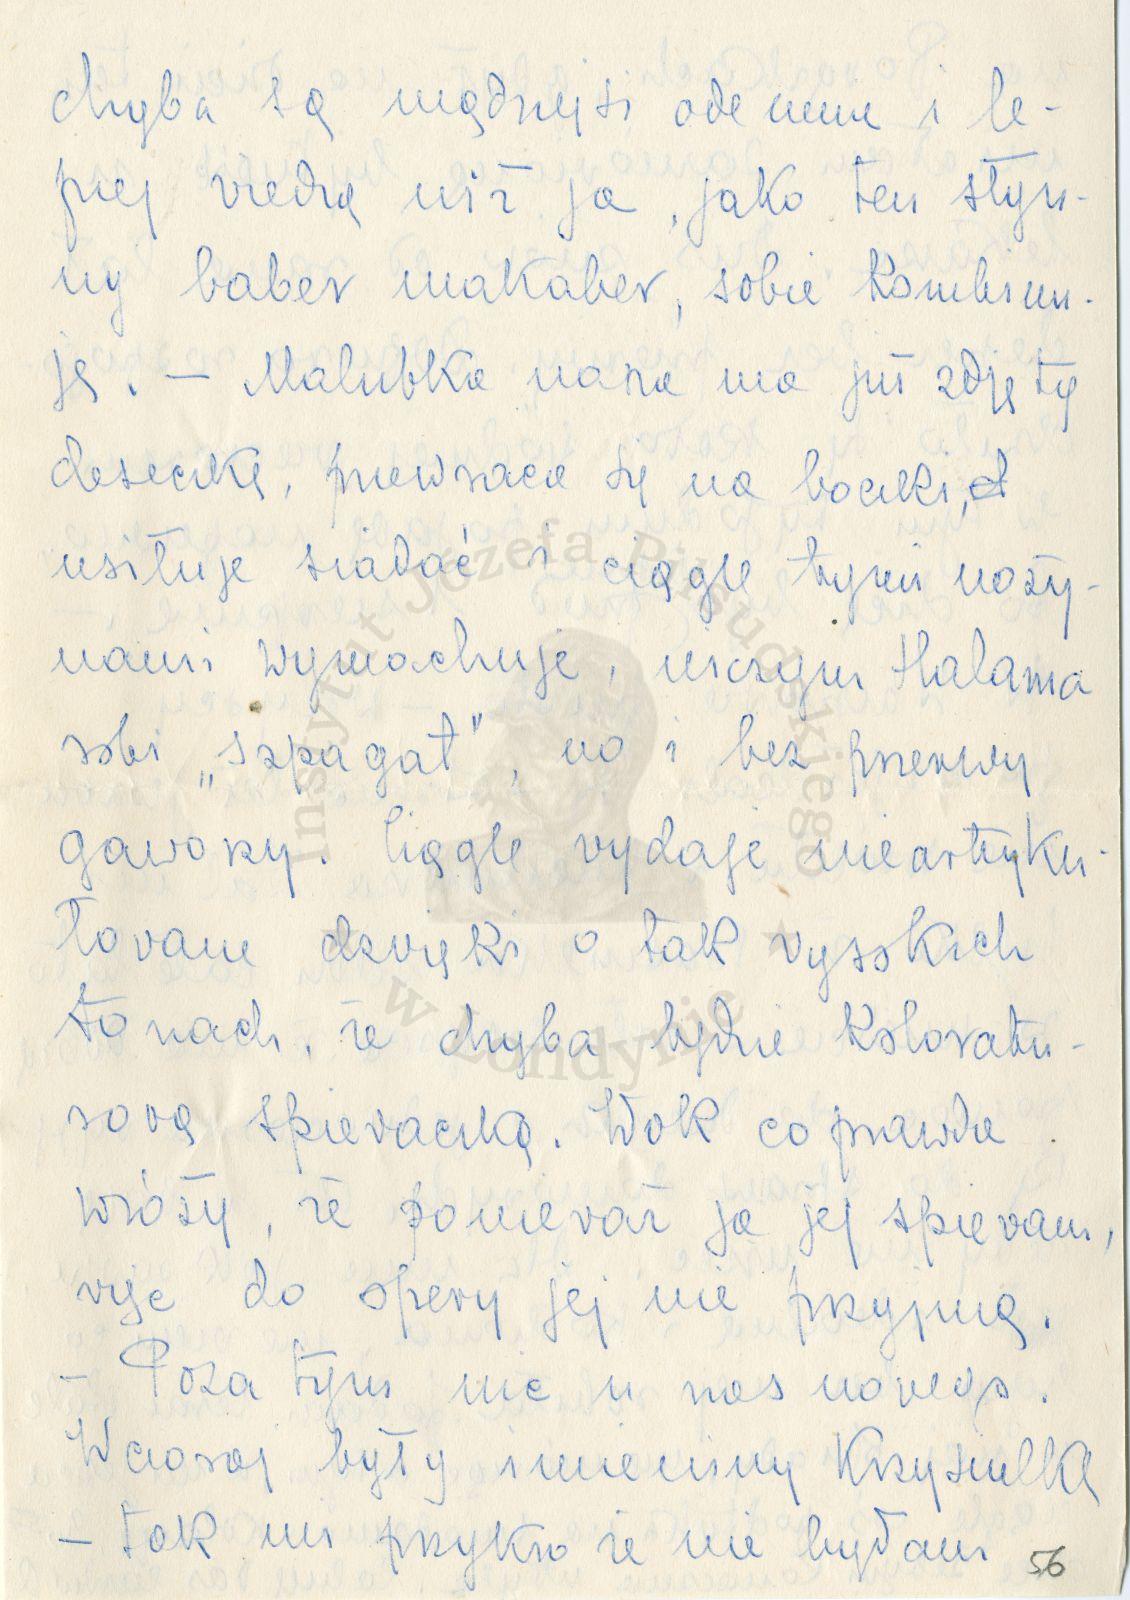 chyba są mądrzejsi odemnie i le-
piej wiedzą niż ja, jako ten słyn-
ny baber makaber, sobie kombinu-
ję. — Malubka nasza ma już zdjętą
deseczkę, przewraca się na boczki,
usiłuje siadać i ciągle tymi noży-
nami wymachuje, niczym Halama
robi „szpagat", no i bez przerwy
gaworzy. Ciągle wydaje nieartyku-
łowane dzwięki o tak wysokich
tonach, że chyba będzie koloratu-
rową śpiewaczką. Wok co prawda
wróży, że ponieważ ja jej śpiewam,
więc do opery jej nie przyjmą.
— Poza tym nic u nas nowego.
Wczoraj były imieniny Krzysiulka
— tak mi przykro że nie byłam
56
Instytut Józefa Piłsudskiego
w Londynie